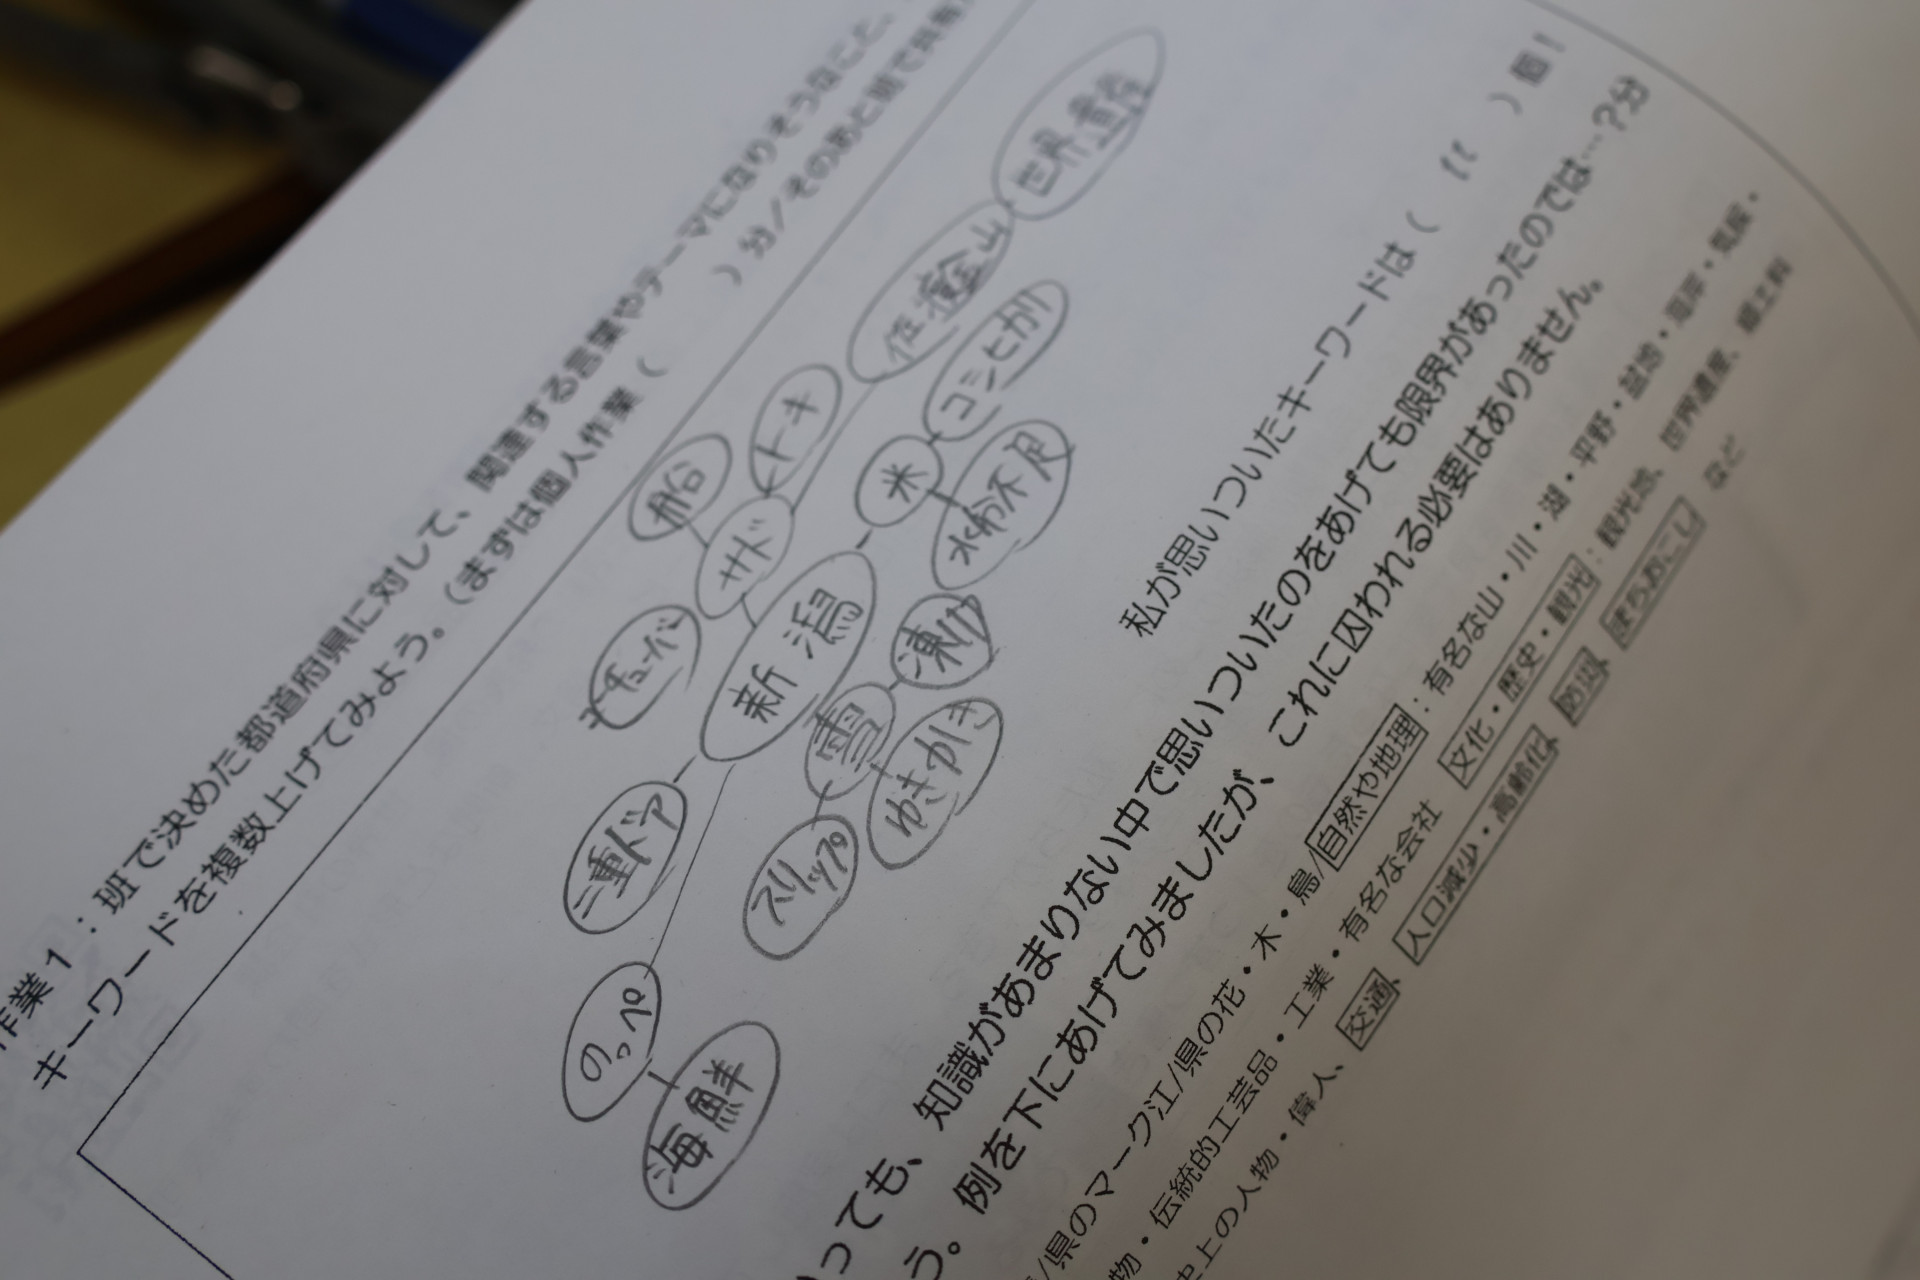 作業1：班で決めた都道府県に対して、関連する言葉やテーマになりそうなこと、
キーワードを複数上げてみよう。（まずは個人作業（　　）分／そのあと班で共有
世界遺産
佐渡金山
コシヒカリ
トキ
米
水わ不足
船台
サド
新潟
凍り
チューバ
雪
ゆきかき
二重ドア
スリップ
のっぺ
海鮮
私が思いついたキーワードは（　　）個！
っても、知識があまりない中で思いついたのをあげても限界があったのでは…？分
う。例を下にあげてみましたが、これに囚われる必要はありません。
/県のマーク江/県の花・木・鳥/自然や地理：有名な山・川・湖・平野・盆地・海岸・気候・
物・伝統的工芸品・工業・有名な会社　文化・歴史・観光：観光地、世界遺産、郷土料
史上の人物・偉人、交通、人口減少・高齢化、防災、まちおこし　など